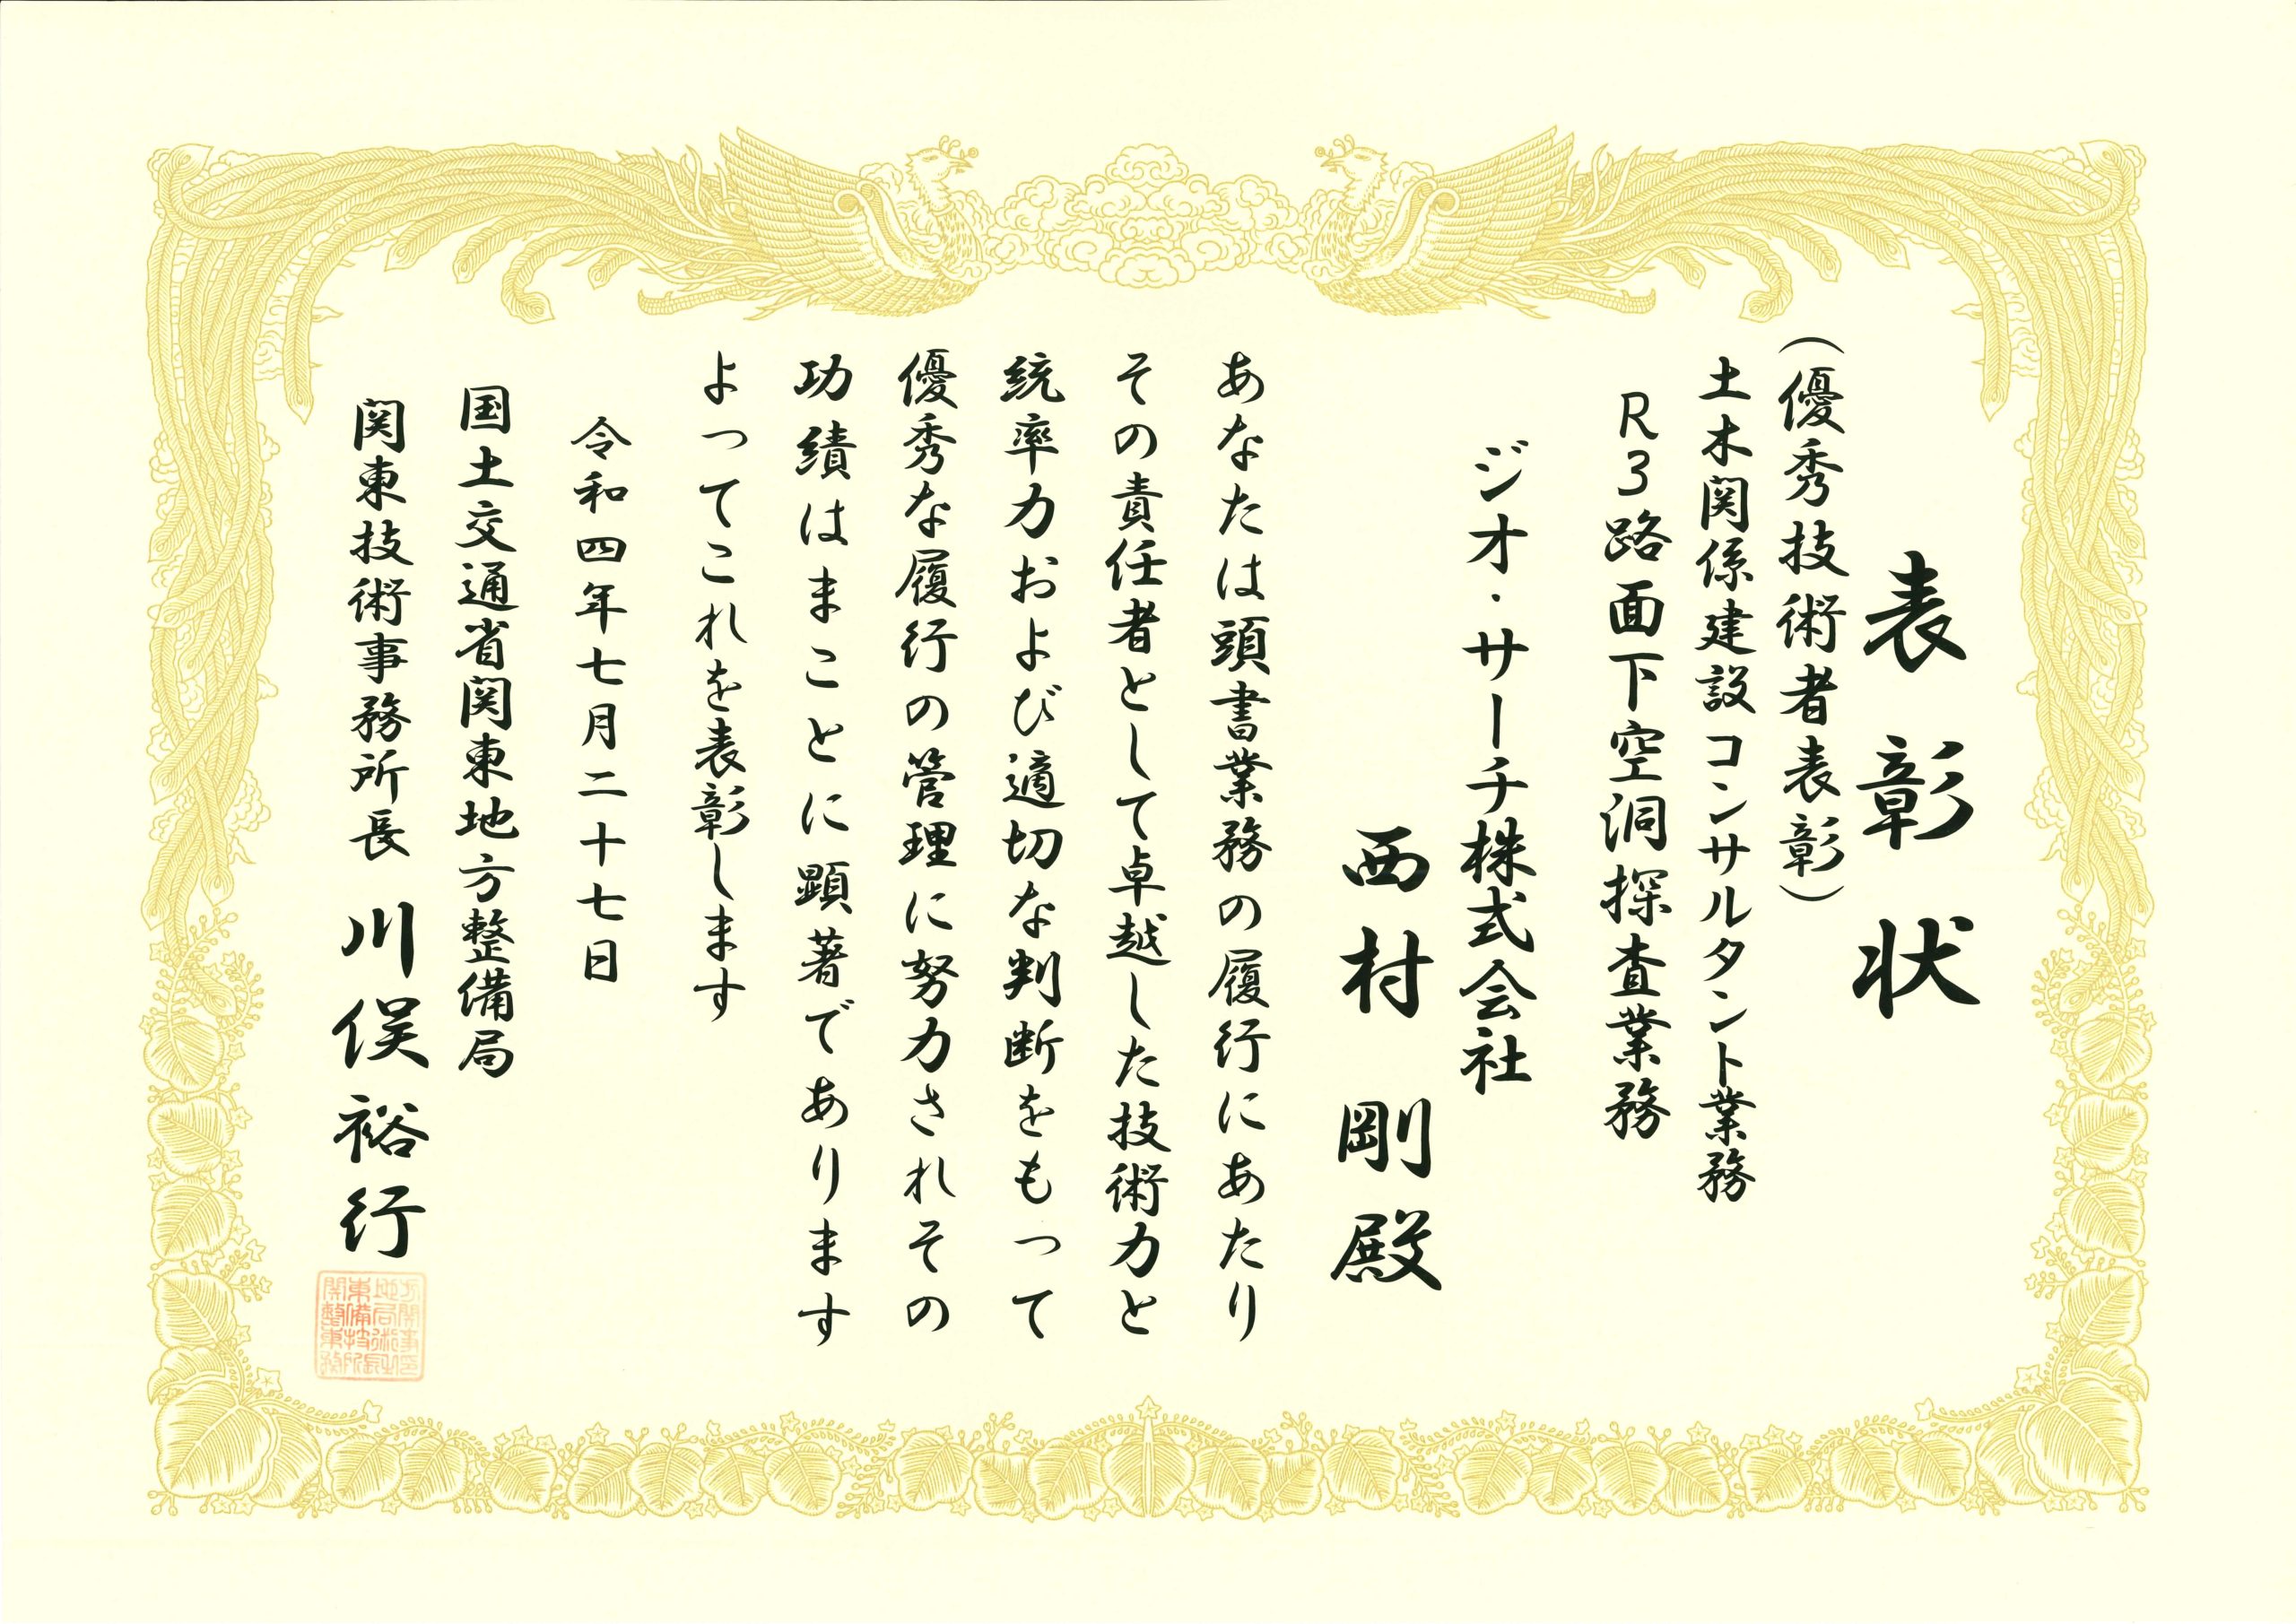 表彰状
（優秀技術者表彰）
土木関係建設コンサルタント業務
R3路面下空洞探査業務
ジオ・サーチ株式会社
西村 剛 殿
あなたは頭書業務の履行にあたり
その責任者として卓越した技術力と
統率力および適切な判断をもって
優秀な履行の管理に努力されその
功績はまことに顕著であります
よってこれを表彰します
令和四年七月二十七日
国土交通省関東地方整備局
関東技術事務所長 川俣裕行